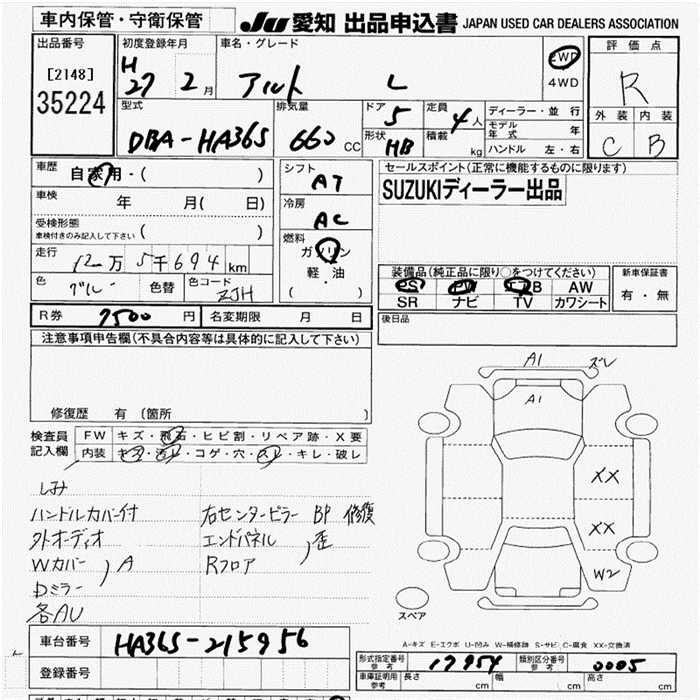 車内保管・守衛保管 JU 愛知 出品申込書 JAPAN USED CAR DEALERS ASSOCIATION
出品番号 初度登録年月 車名・グレード 2WD 評価点
[2148] H 27 2月 アルト L 4WD R
35224 型式 排気量 ドア 5 定員 4人 ディーラー・並行 外装 内装
DBA-HA36S 660 CC 形状 HB 積載 kg モデル年式 年 C B
ハンドル 左・右
車歴 自家用・( ) シフト AT セールスポイント(正常に機能するものに限ります)
車検 年 月( 日) 冷房 AC SUZUKIディーラー出品
受検形態 車検付きのみ記入して下さい ( ) 燃料
走行 12万5千694km ガソリン
軽・油
( )
色 グレー 色替 色コード ZJH
装備品(純正品に限り○をつけてください) 新車保証書
PS PW エアB AW 有・無
SR ナビ TV カワシート
R券 7500円 名変期限 月 日 後日品
注意事項申告欄(不具合内容等は具体的に記入して下さい)
修復歴 有 (箇所 )
検査員記入欄 FW キズ・飛石・ヒビ割・リペア跡・X要
内装 キズ・汚レ・コゲ・穴・スレ・キレ・破レ
しみ
ハンドルカバー付 右センターピラー BP 修復
外オーディオ エンドパネル 歪
Wカバー A Rフロア
Dミラー
各AU
A1 ズレ
A1
XX
XX
W2
スペア
A-キズ E-エクボ U-凹み W-補修跡 S-サビ C-腐食 XX-交換済
車台番号 HA36S-215956
登録番号
形式指定番号 参考 17954 類別区分番号 参考 0005
車庫証明用 参考 長さ cm 幅 cm 高さ cm